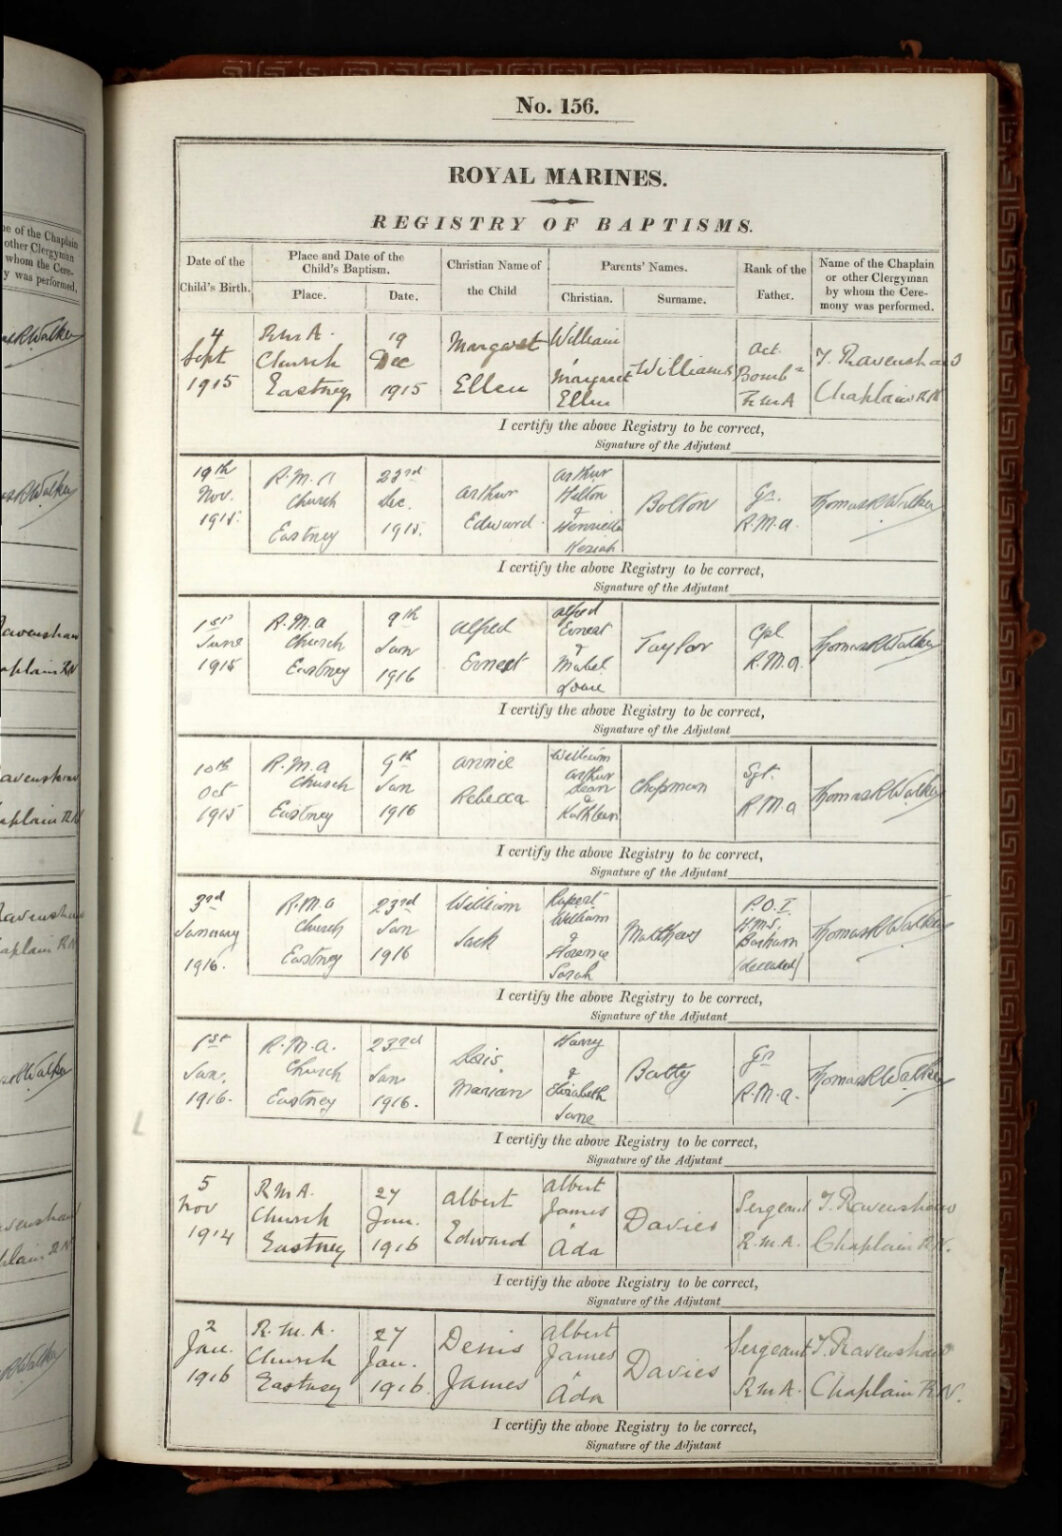 No. 156.
ROYAL MARINES.
REGISTRY OF BAPTISMS.
Date of the Child's Birth.
Place and Date of the Child's Baptism.
Place.
Date.
Christian Name of the Child
Parents' Names.
Christian.
Surname.
Rank of the Father.
Name of the Chaplain or other Clergyman by whom the Ceremony was performed.
4 Sept 1915
R.M.A. Church Eastney
19 Dec 1915
Margaret Ellen
William & Margaret Ellen
Williams
Act. Bombr R.M.A
T. Ravenshaw Chaplain R.N.
I certify the above Registry to be correct,
Signature of the Adjutant
19th Nov. 1915.
R.M.A Church Eastney
23rd Dec. 1915.
Arthur Edward
Arthur Hilton & Henrietta Keziah
Bolton
Gr. R.M.A.
Thomas R Walker
I certify the above Registry to be correct,
Signature of the Adjutant
1st June 1915
R.M.A Church Eastney
9th Jan 1916
Alfred Ernest
Alfred Ernest & Mabel Louie
Taylor
Cpl R.M.A.
Thomas R Walker
I certify the above Registry to be correct,
Signature of the Adjutant
10th Oct 1915
R.M.A Church Eastney
9th Jan 1916
Annie Rebecca
William Arthur & Kathleen
Chapman
Sgt. R.M.A
Thomas R Walker
I certify the above Registry to be correct,
Signature of the Adjutant
3rd January 1916.
R.M.A Church Eastney
23rd Jan 1916
William Jack
Rupert William & Florence Sarah
Matthews
P.O.I. H.M.S. (deceased)
Thomas R Walker
I certify the above Registry to be correct,
Signature of the Adjutant
1st Jan. 1916.
R.M.A. Church Eastney
23rd Jan 1916.
Marian
Harry & Elizabeth Jane
Batty
Gr R.M.A.
Thomas R Walker
I certify the above Registry to be correct,
Signature of the Adjutant
5 Nov 1914
R.M.A. Church Eastney
27 Jan. 1916
Albert Edward
Albert James & Ada
Davies
Sergeant R.M.A.
T. Ravenshaw Chaplain R.N.
I certify the above Registry to be correct,
Signature of the Adjutant
2 Jan. 1916
R.M.A. Church Eastney
27 Jan. 1916.
Denis James
Albert James & Ada
Davies
Sergeant R.M.A.
T. Ravenshaw Chaplain R.N.
I certify the above Registry to be correct,
Signature of the Adjutant